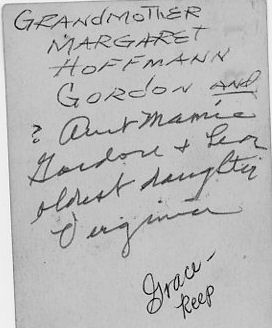 GRANDMOTHER
MARGARET
HOFFMANN
GORDON and
? Aunt Mamie
Gordon + Leon
oldest daughter
Virginia
Grace -
keep